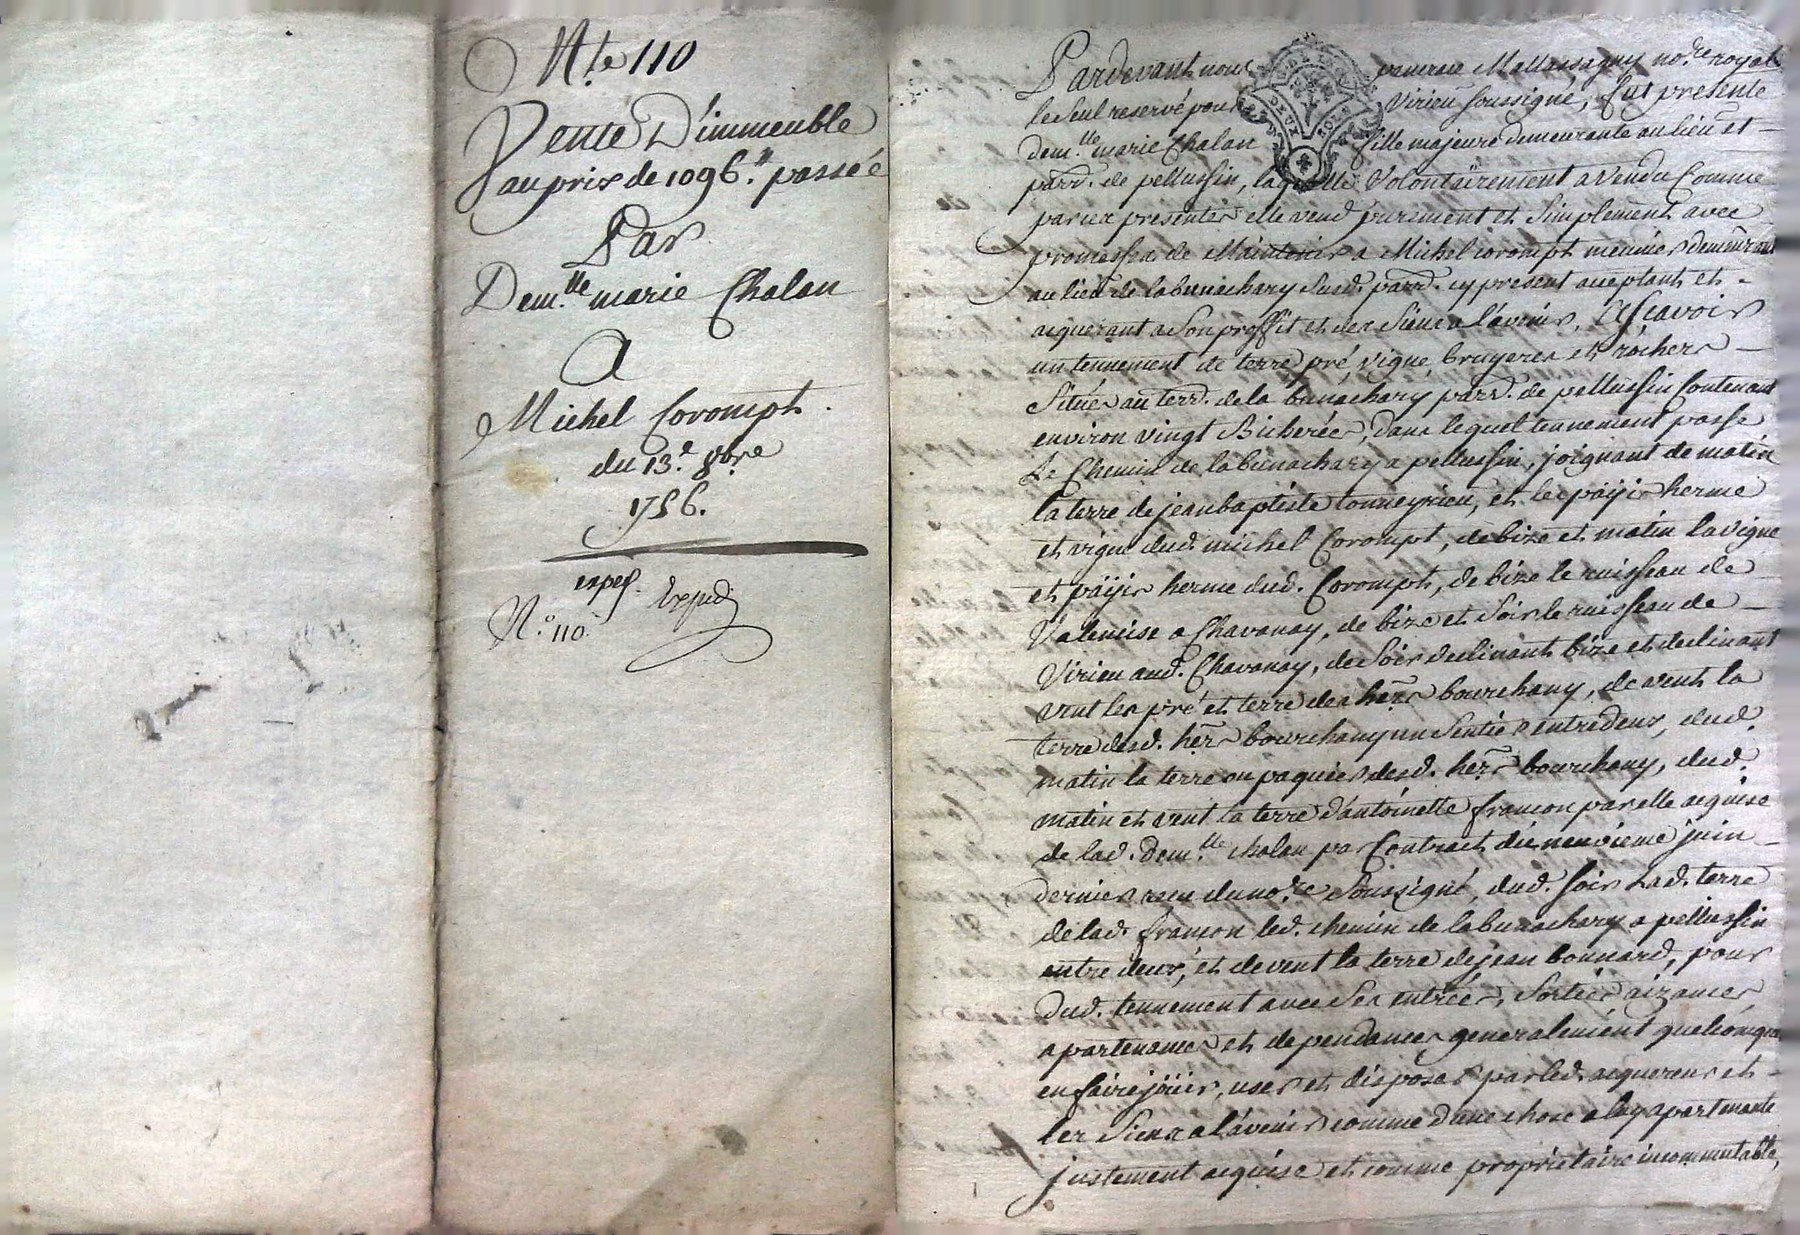 N.te 110
Vente D'immeuble
au prix de 1096.# passée
Par
Dem.lle marie Chalan
A
Michel Corompt.
du 13.e 8bre
1756.
exped.
N.o 110.
Pardevant nous
le seul reservé pour Virieu soussigné, fut presente
dem.lle marie Chalan fille majeure demeurante au lieu et
parr. de pellussin, laquelle Volontairement a vendu Comme
par ces presentes elle vend purement et simplement avec
promesses de Maintenir a Michel Corompt meunier demeurant
au lieu de labunachary susd. parr. cy present acceptant et
acquerant a son proffit et des siens a l'avenir, Asçavoir
un tennement de terre, pré, vigne, bruyeres et rochers
Situés au terr. de la bunachary parr. de pellussin Contenant
environ vingt Bicherées, dans lequel tennement passe
Le Chemin de labunachary a pellussin, joignant de matin
la terre de jean baptiste tonneyrieu, et les païjis herme
et vigne dud. michel Corompt, de bize et matin la vigne
et païjis herme dud. Corompt, de bize le ruisseau de
Valencise a Chavanay, de bize et soir le ruisseau de
Virieu aud. Chavanay, de soir declinant bize et declinant
vent les pré et terre des hers bourchany, de vent la
terre desd. hers bourchany un sentier entredeux, dud.
matin la terre ou paquier desd. hers bourchany, dud.
matin et vent la terre d'antoinette françon par elle acquise
de lad. dem.lle chalan par Contract du neuvieme juin
dernier receu du no.re soussigné, dud. soir Lad. terre
de lad. françon led. chemin de labunachary a pellussin
entre deux, et de vent la terre de jean bonnard, pour
dud. tennement avec ses entrées, sorties aizances
apartenances et dependances generalement quelconques
en faire joüir, user et disposer par led. acquereur et
les Siens a l'avenir comme d'une chose a luy apartenante
justement acquise et comme proprietaire incommutable,